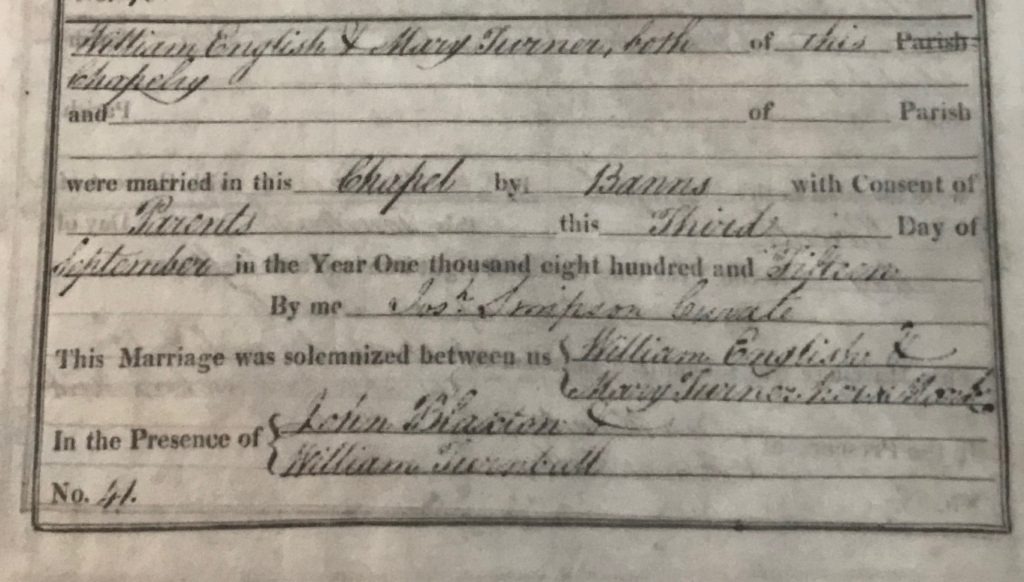 William English & Mary Turner, both of this Parish
Chapelry
and of Parish
were married in this Chapel by Banns with Consent of
Parents this Third Day of
September in the Year One thousand eight hundred and Fifteen
By me Josh. Simpson Curate
This Marriage was solemnized between us William English &
Mary Turner Mark
In the Presence of John Blaxton &
William Turnbull
No. 41.